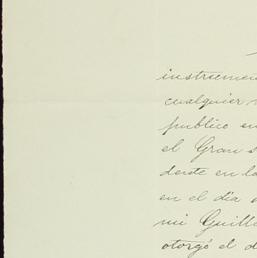 instrumen
cualquier
publico en
el Gran
dente en l
en el dia
mi Guill
otorgé el d